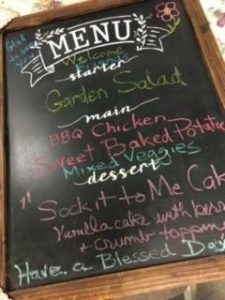 Glad
MENU
Welcome
starter
Garden Salad
main
BBQ Chicken
Sweet Baked Potatoe
Mixed Veggies
dessert
Sock it to Me Cak
Vanilla cake with
& crumb topping
Have a Blessed Day